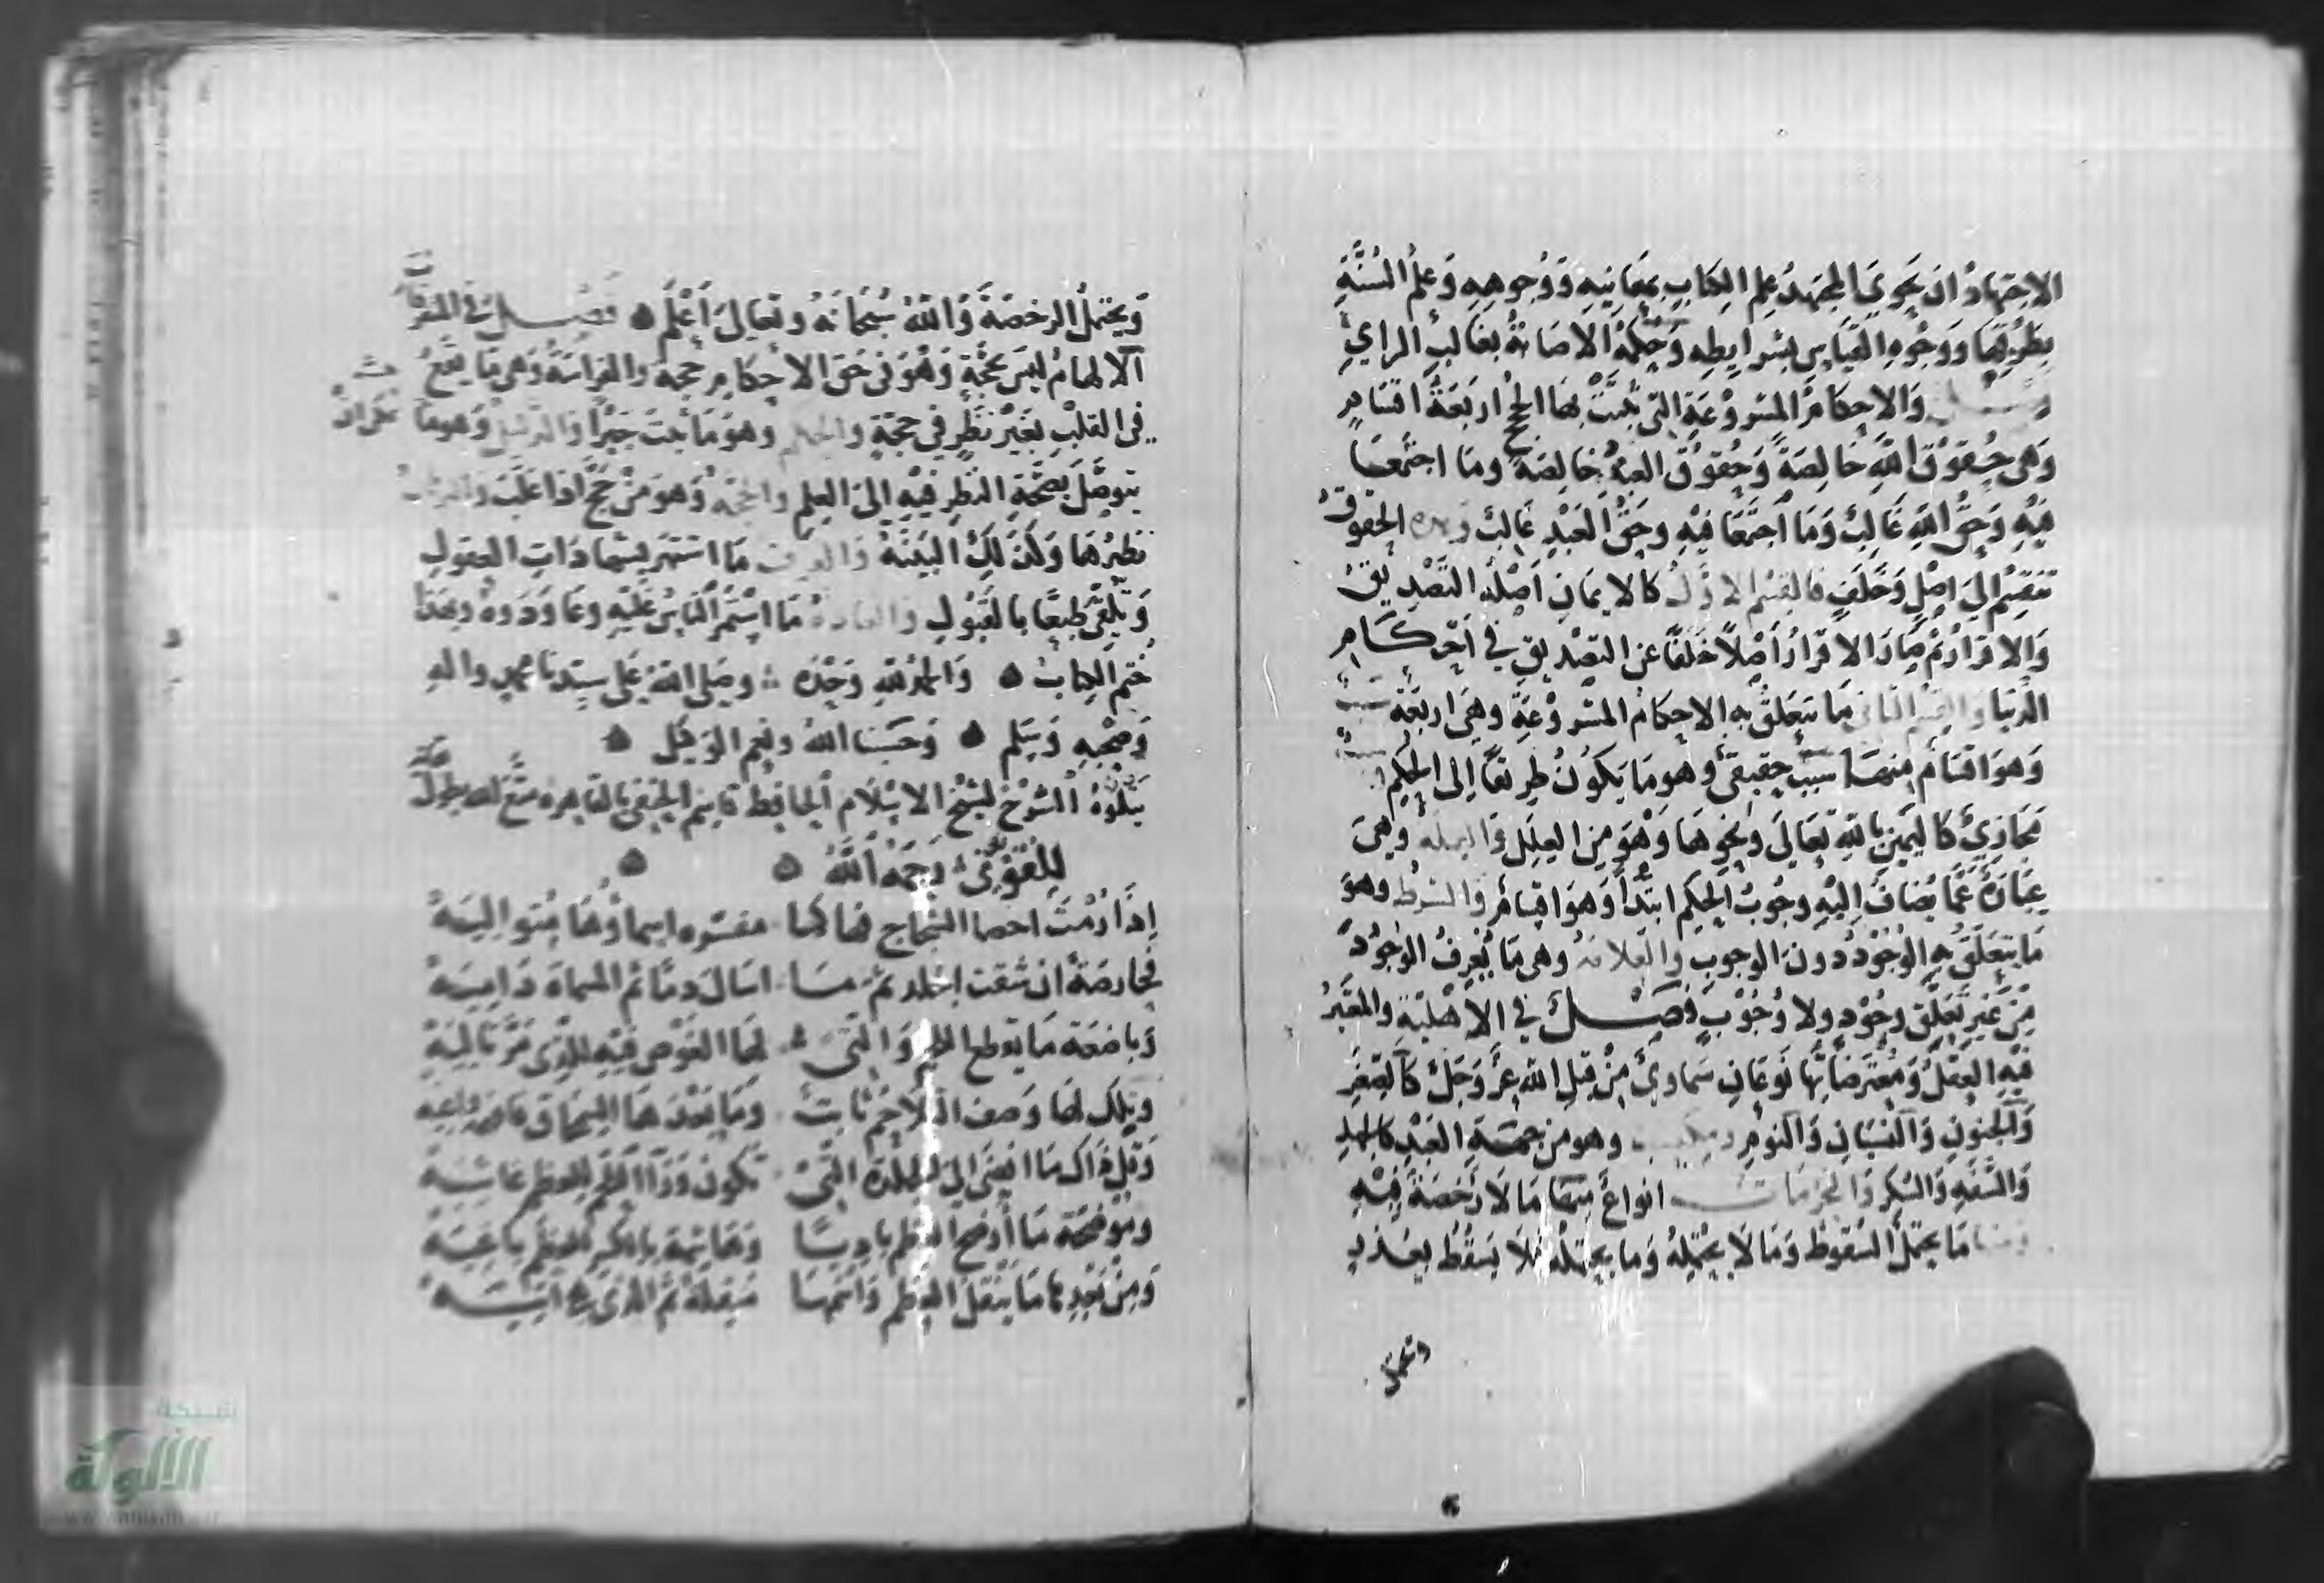 الاجتهاد ان يحوي المجتهد علم الكتاب بمعانيه ووجوهه وعلم السنة
بطرقها ووجوه القياس بشرايطه وحكمه الاصابة بغالب الراي
والاحكام المشروعة التي ثبتت بها الحجج اربعة اقسام
وهي حقوق الله خالصة وحقوق العبد خالصة وما اجتمعا
فيه وحق الله غالب وما اجتمعا فيه وحق العبد غالب الحقوق
تنقسم الى اصل وخلف فالقسم الاول كالايمان اصله التصديق
والاقرار ثم صار الاقرار اصلا خلفا عن التصديق في احكام
الدنيا والقسم الثاني ما يتعلق به الاحكام المشروعة وهي اربعة سبب
وهو اقسام منها سبب حقيقي وهو ما يكون طريقا الى الحكم
مجازي كاليمين بالله تعالى ونحوها وهو من العلل والعلة وهي
عبارة عما يضاف اليه وجوب الحكم ابتدأ وهو اقسام والشرط وهو
ما يتعلق به الوجود دون الوجوب والعلامة وهي ما يعرف الوجود
من غير تعلق وجود ولا وجوب فصل في الاهلية والمعتبر
فيه العقل ومعترضاتها نوعان سماوي من قبل الله عز وجل كالصغر
والجنون والنسيان والنوم وهو من جهة العبد كالجهل
والسفه والسكر والحرمات انواع منها ما لا رخصة فيه
ومنها ما يحتمل السقوط وما لا يحتمله وما يحتمله فلا يسقط بعذر
ويحتمل
ويحتمل الرخصة والله سبحانه وتعالى اعلم فصل في المتفرقات
الالهام ليس بحجة وهو في حق الاحكام حجة والفراسة وهي ما يقع
في القلب بغير نظر في حجة والحكم وهو ما ثبت جبرا والدليل وهو ما
يتوصل بصحة النظر فيه الى العلم والحجة وهو من حج اذا غلب
نظيرها وكذلك البينة والعرف ما اشتهر بشهادات العقول
وتلقى طبعا بالقبول والعادة ما استمر الناس عليه وعاودوه وبهذا
ختم الكتاب والحمد لله وحده وصلى الله على سيدنا محمد واله
وصحبه وسلم وحسبنا الله ونعم الوكيل
يتلوه الشرح لشيخ الاسلام الحافظ قاسم الحنفي بالقاهرة متع الله بطول
رحمه الله
اذا رمت احصا الشجاج فهاكها مفسره اسماؤها متواليه
فحارصة ان شقت الجلد ثم ما اسال دما ثم المسماة داميه
وباضعة ما تقطع اللحم والتي لها الغوص فيه للذي مر تاليه
وتلك لها وصف التلاحم ثابت وما بعدها السمحاق
وقل ذاك ما افضى الى الجلدة التي تكون ورآ اللحم للعظم غاشيه
وموضحة ما اوضح العظم باديا وهاشمة بالكسر للعظم باغيه
ومن بعدها ما ينقل العظم واسمها منقلة ثم الذي اتيه